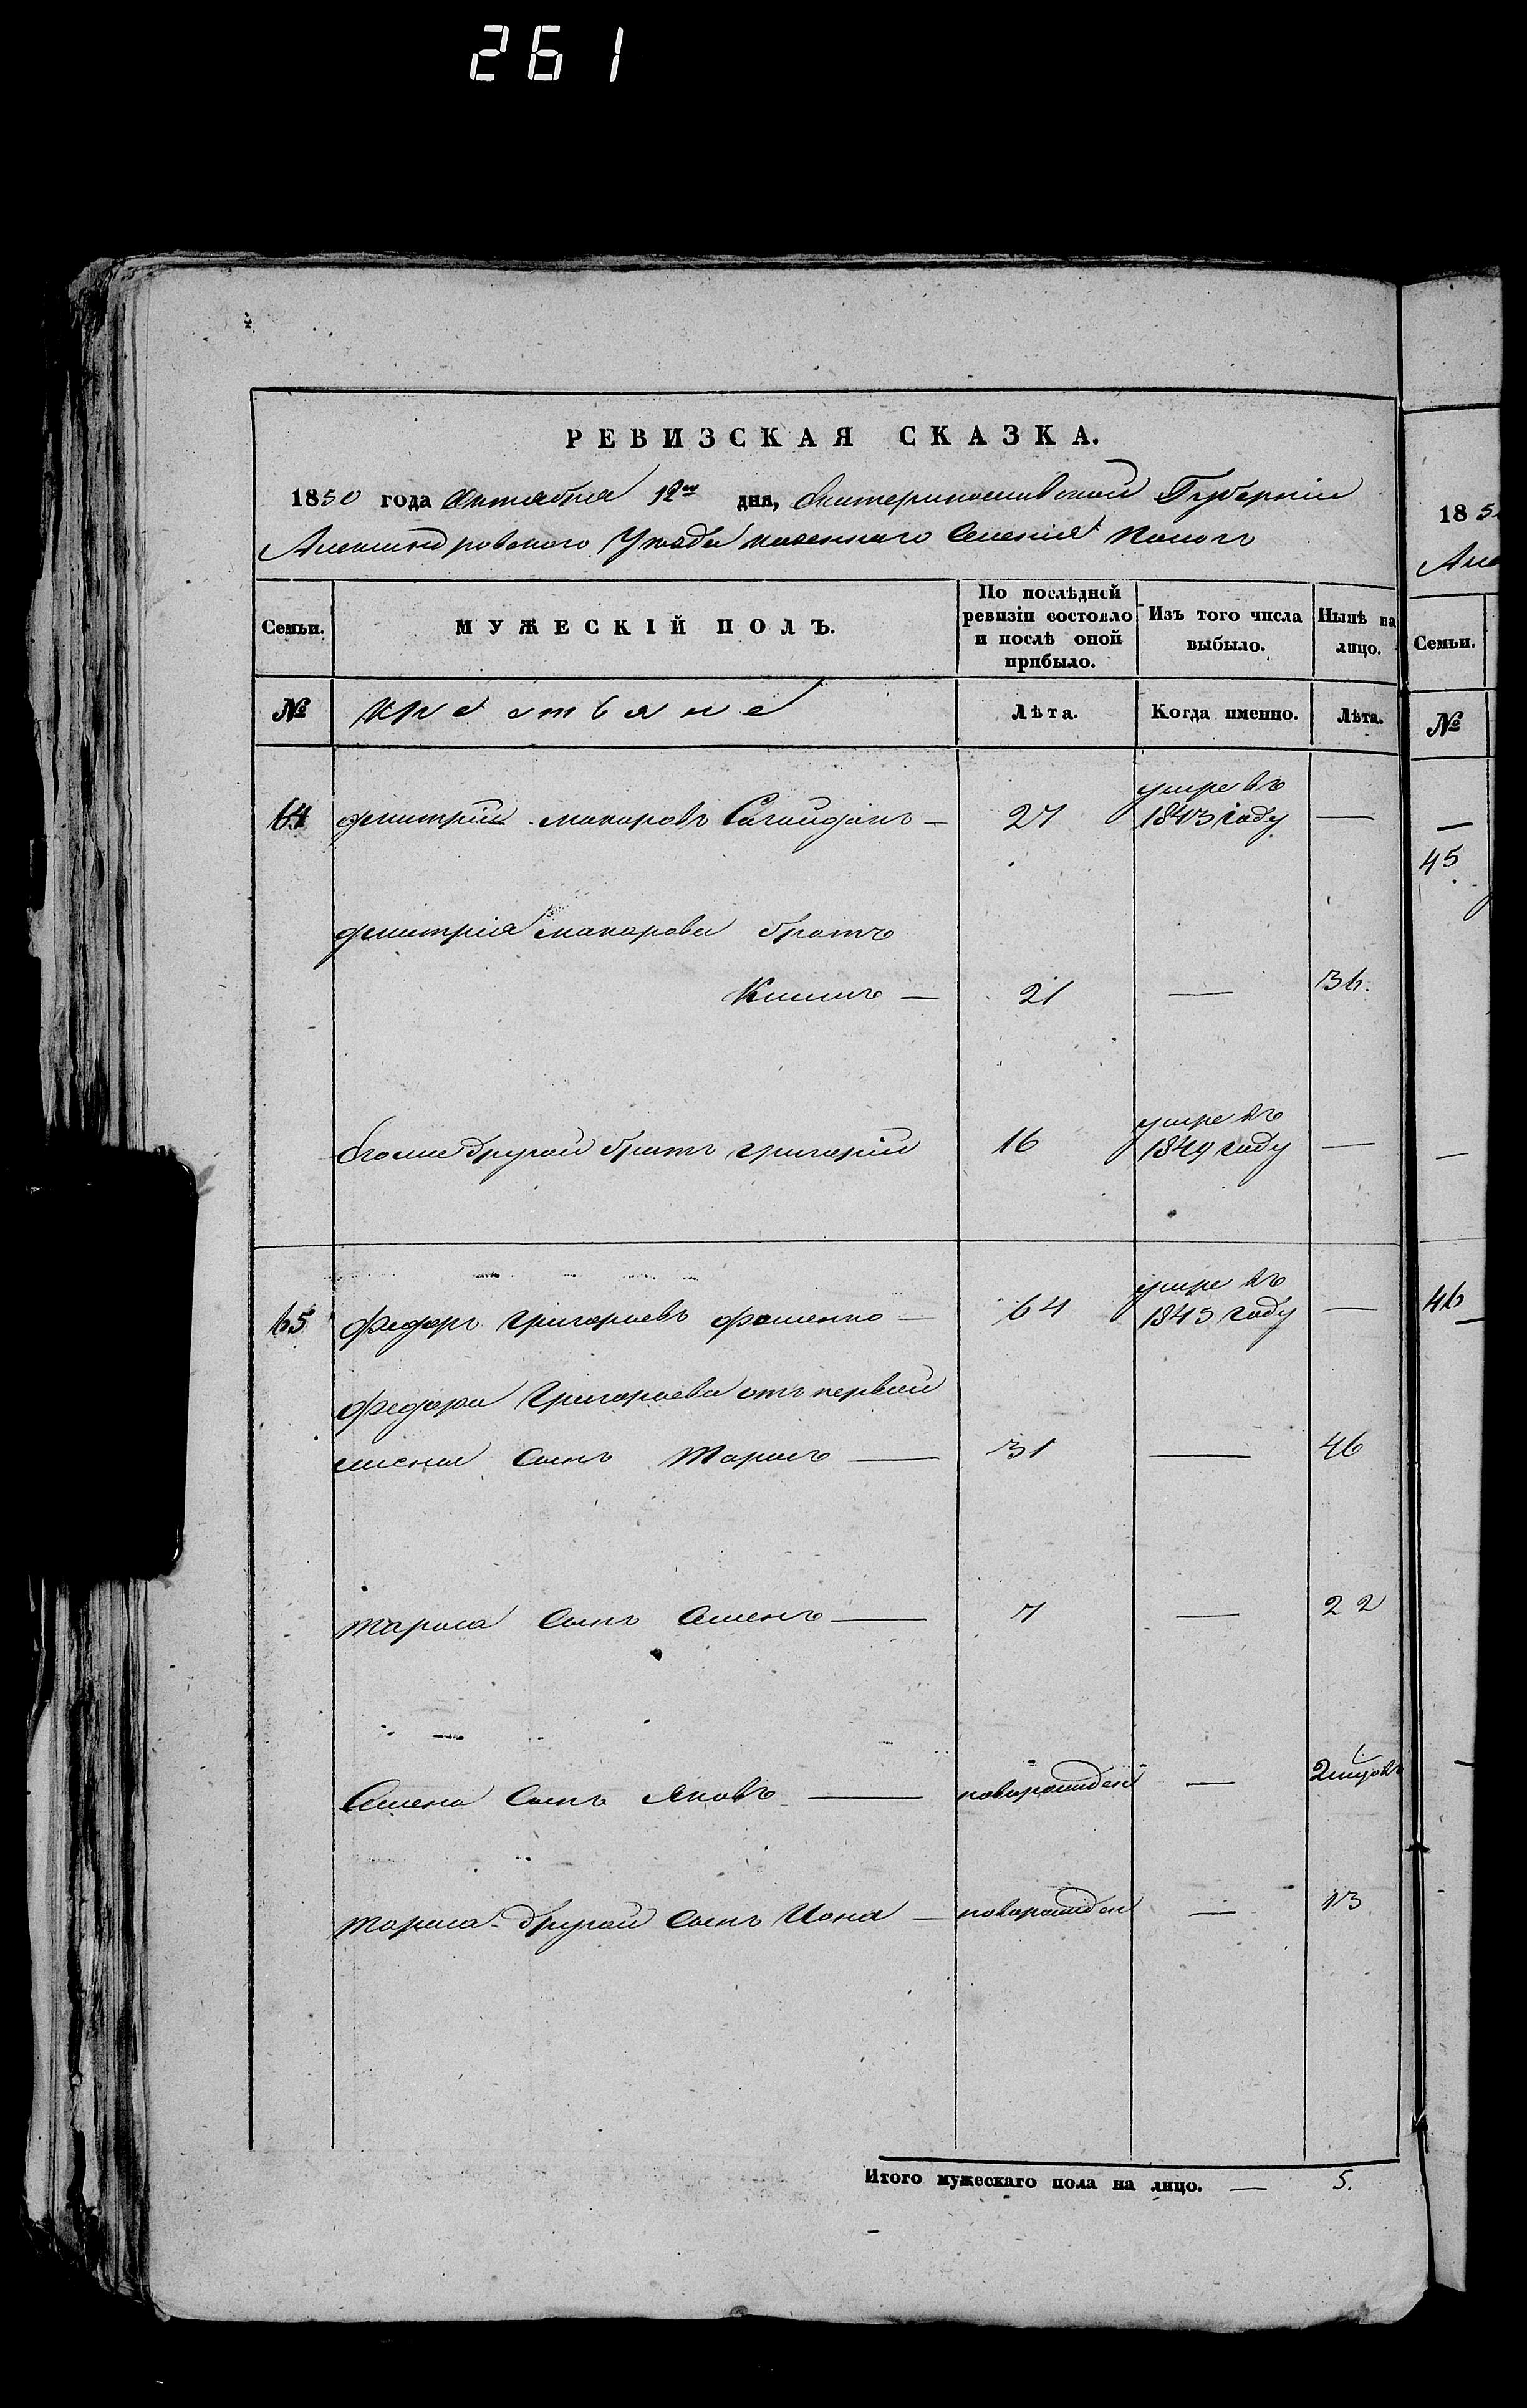 261
РЕВИЗСКАЯ СКАЗКА.
1850 года Октября 12го дня, Екатеринославской Губернiи
Александровского Уезда казенного Селенiя Пологъ
Семьи.
МУЖЕСКIЙ ПОЛЪ.
По послѣдней ревизiи состояло и послѣ оной прибыло.
Изъ того числа выбыло.
Нынѣ на лицо.
№
крестьяне
Лѣта.
Когда именно.
Лѣта.
64 Дмитрiй Макаровъ Сагайданъ — 27 умре въ 1843 году —
Дмитрiя Макарова братъ
Климъ — 21 — 36.
Его же другой братъ Григорiй 16 умре въ 1849 году —
65 Федоръ Григорьевъ — 64 умре въ 1843 году —
Федора Григорьева отъ первой
жены Сынъ Тарасъ — 31 — 46
Тараса Сынъ Семенъ — 7 — 22
Семена Сынъ Яковъ — новорожден — 2
Тараса другой Сынъ Иона — новорожден — 13
Итого мужескаго пола на лицо. — 5.
18 5
Але
Семьи.
№
—
45
—
46
—